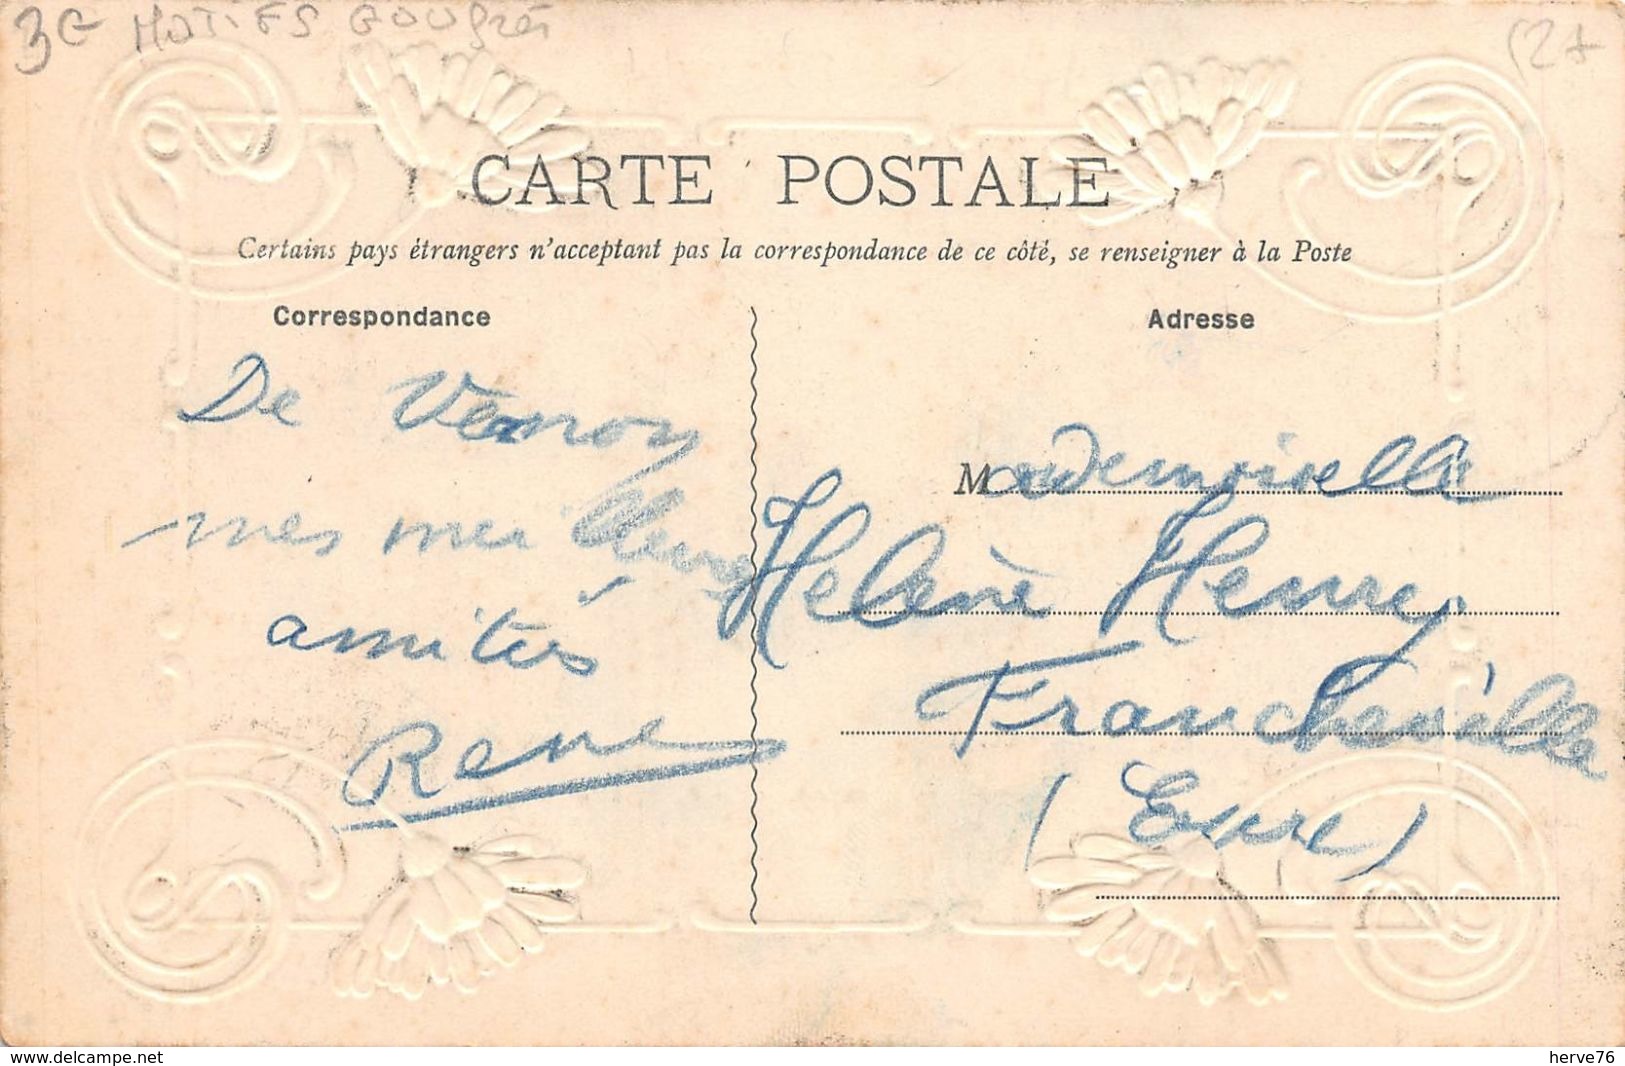 3e MOTIFS GOUGRÉS 12+
CARTE POSTALE
Certains pays étrangers n'acceptant pas la correspondance de ce côté, se renseigner à la Poste
Correspondance
De Vernon
mes meilleures
amitiés
René
Adresse
Mademoiselle
Hélène Henry
Francheville
(Eure)
www.delcampe.net
herve76